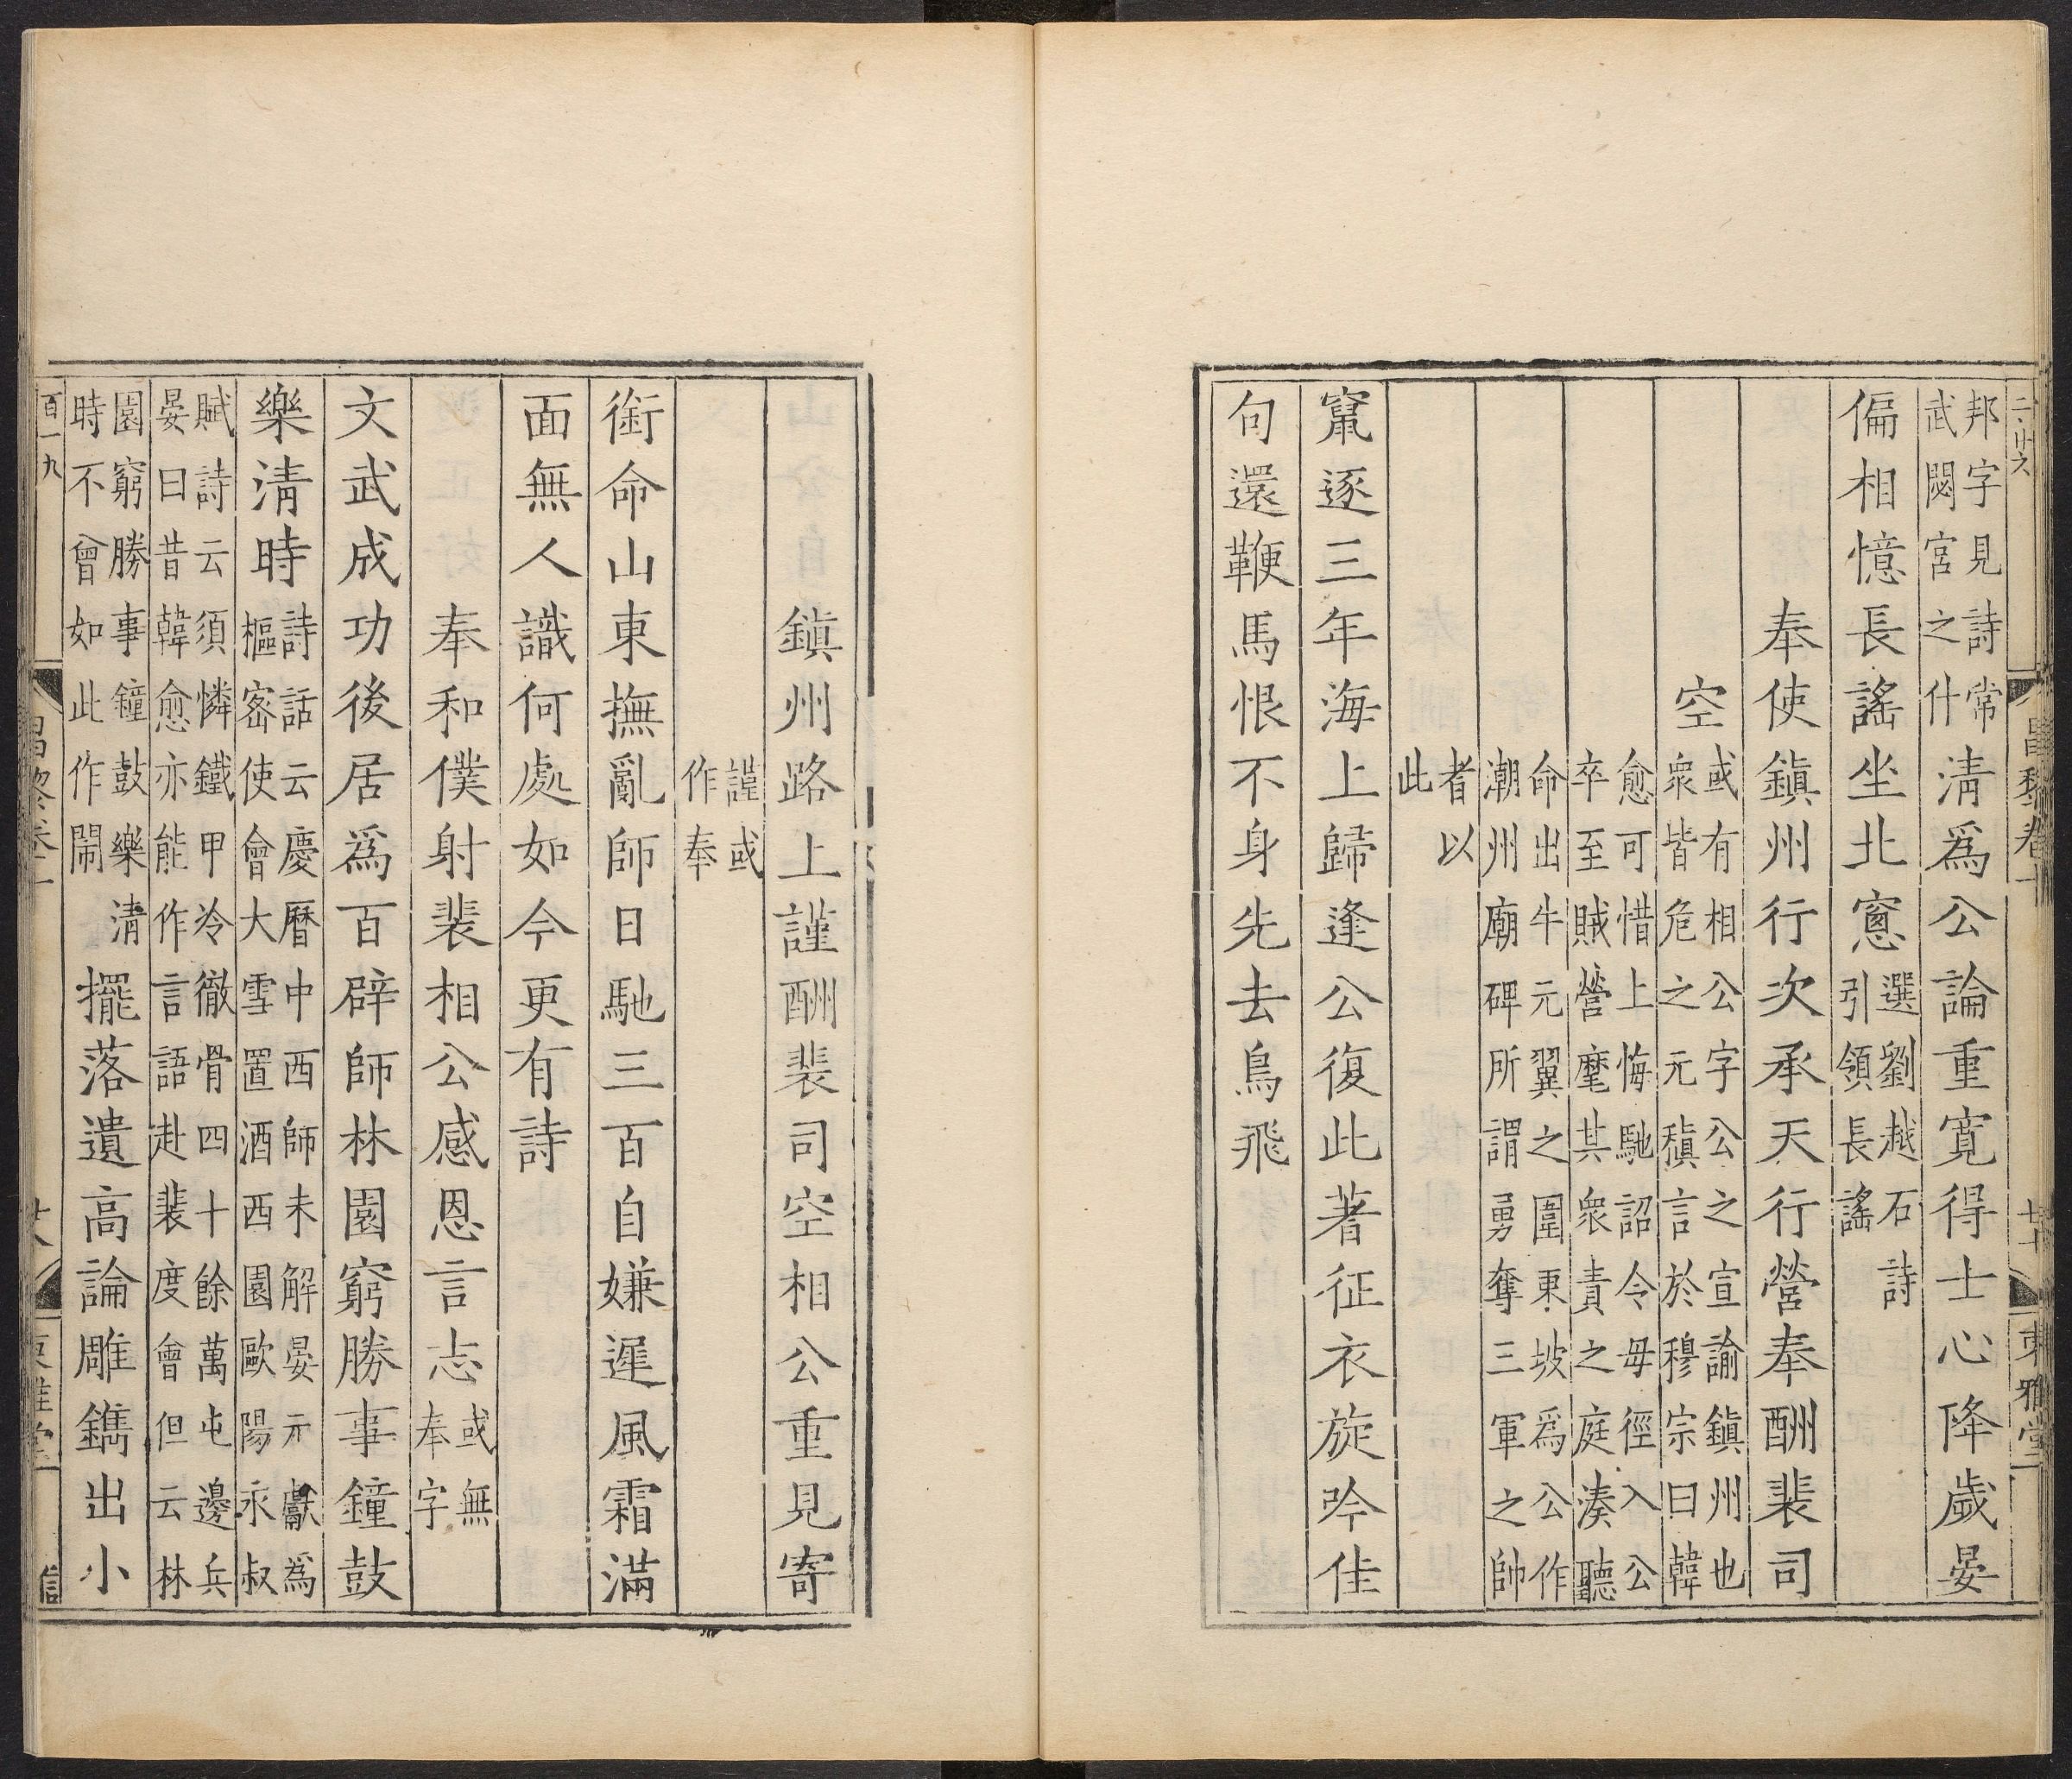 二·廿六
昌黎卷十
廿七
東雅堂
邦字見詩常
武閟宮之什
清爲公論重寛得士心降歲晏
偏相憶長謠坐北窻
選劉越石詩
引領長謠
奉使鎮州行次承天行營奉酬裴司
空
或有相公字公之宣諭鎮州也
衆皆危之元稹言於穆宗曰韓
愈可惜上悔馳詔令毋徑入公
卒至賊營麾其衆責之庭湊聽
命出牛元翼之圍東坡爲公作
潮州廟碑所謂勇奪三軍之帥
者以
此
竄逐三年海上歸逢公復此著征衣旋吟佳
句還鞭馬恨不身先去鳥飛
鎮州路上謹酬裴司空相公重見寄
謹或
作奉
銜命山東撫亂師日馳三百自嫌遲風霜滿
面無人識何處如今更有詩
奉和僕射裴相公感恩言志
或無
奉字
文武成功後居爲百辟師林園窮勝事鐘鼓
樂清時
詩話云慶曆中西師未解晏元獻爲
樞密使會大雪置酒西園歐陽永叔
賦詩云須憐鐵甲冷徹骨四十餘萬屯邊兵
晏曰昔韓愈亦能作言語赴裴度會但云林
園窮勝事鐘鼓樂清
時不曾如此作閙
擺落遺高論雕鐫出小
百一九
昌黎卷十
廿八
東雅堂
信